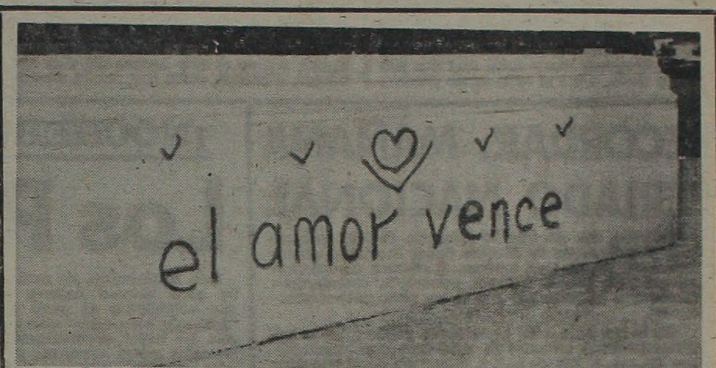 el amor vence